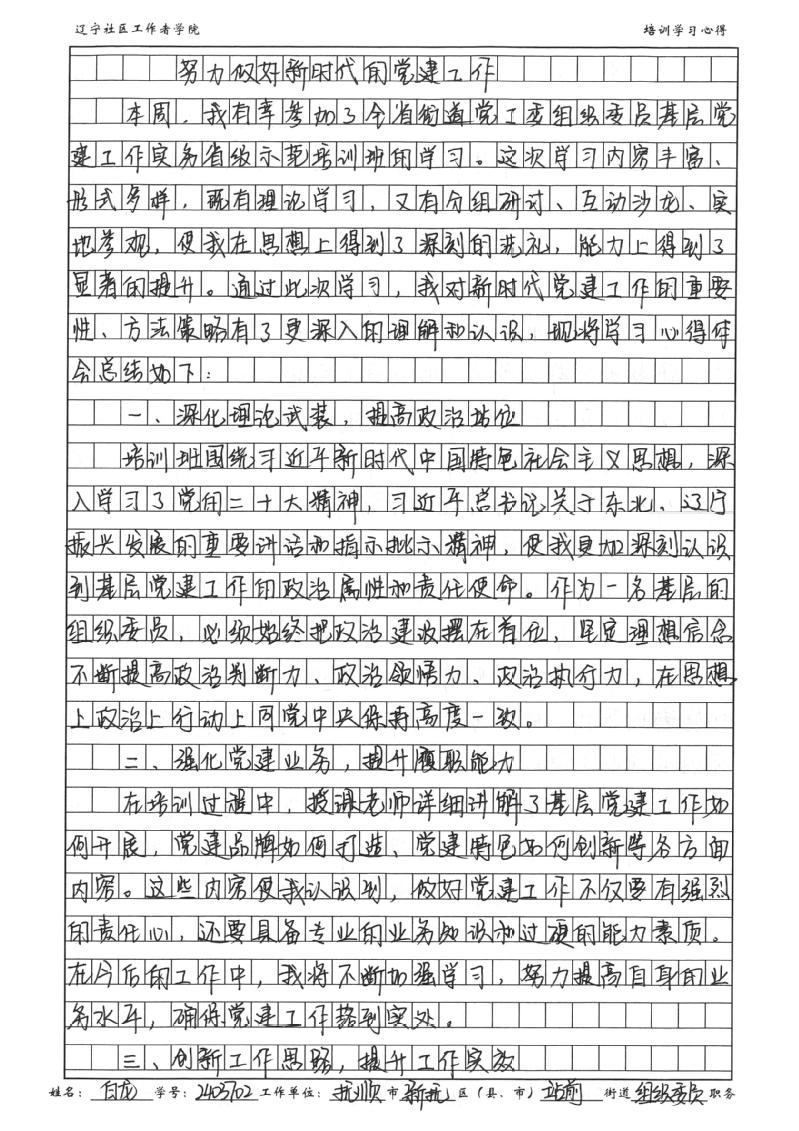 辽宁社区工作者学院 培训学习心得
努力做好新时代的党建工作
本周，我有幸参加了全省街道党工委组织委员基层党
建工作实务省级示范培训班的学习。这次学习内容丰富、
形式多样，既有理论学习，又有分组研讨、互动沙龙、实
地参观，使我在思想上得到了深刻的洗礼，能力上得到了
显著的提升。通过此次学习，我对新时代党建工作的重要
性、方法策略有了更深入的理解和认识，现将学习心得体
会总结如下：
一、深化理论武装，提高政治站位
培训班围绕习近平新时代中国特色社会主义思想，深
入学习了党的二十大精神，习近平总书记关于东北、辽宁
振兴发展的重要讲话和指示批示精神，使我更加深刻认识
到基层党建工作的政治属性和责任使命。作为一名基层的
组织委员，必须始终把政治建设摆在首位，坚定理想信念
不断提高政治判断力、政治领悟力、政治执行力，在思想
上政治上行动上同党中央保持高度一致。
二、强化党建业务，提升履职能力
在培训过程中，授课老师详细讲解了基层党建工作如
何开展，党建品牌如何打造、党建特色如何创新等各方面
内容。这些内容使我认识到，做好党建工作不仅要有强烈
的责任心，还要具备专业的业务知识和过硬的能力素质。
在今后的工作中，我将不断加强学习，努力提高自身的业
务水平，确保党建工作落到实处。
三、创新工作思路，提升工作实效
姓名：白龙 学号：2403702 工作单位：抚顺市新抚区（县、市）站前街道组织委员职务